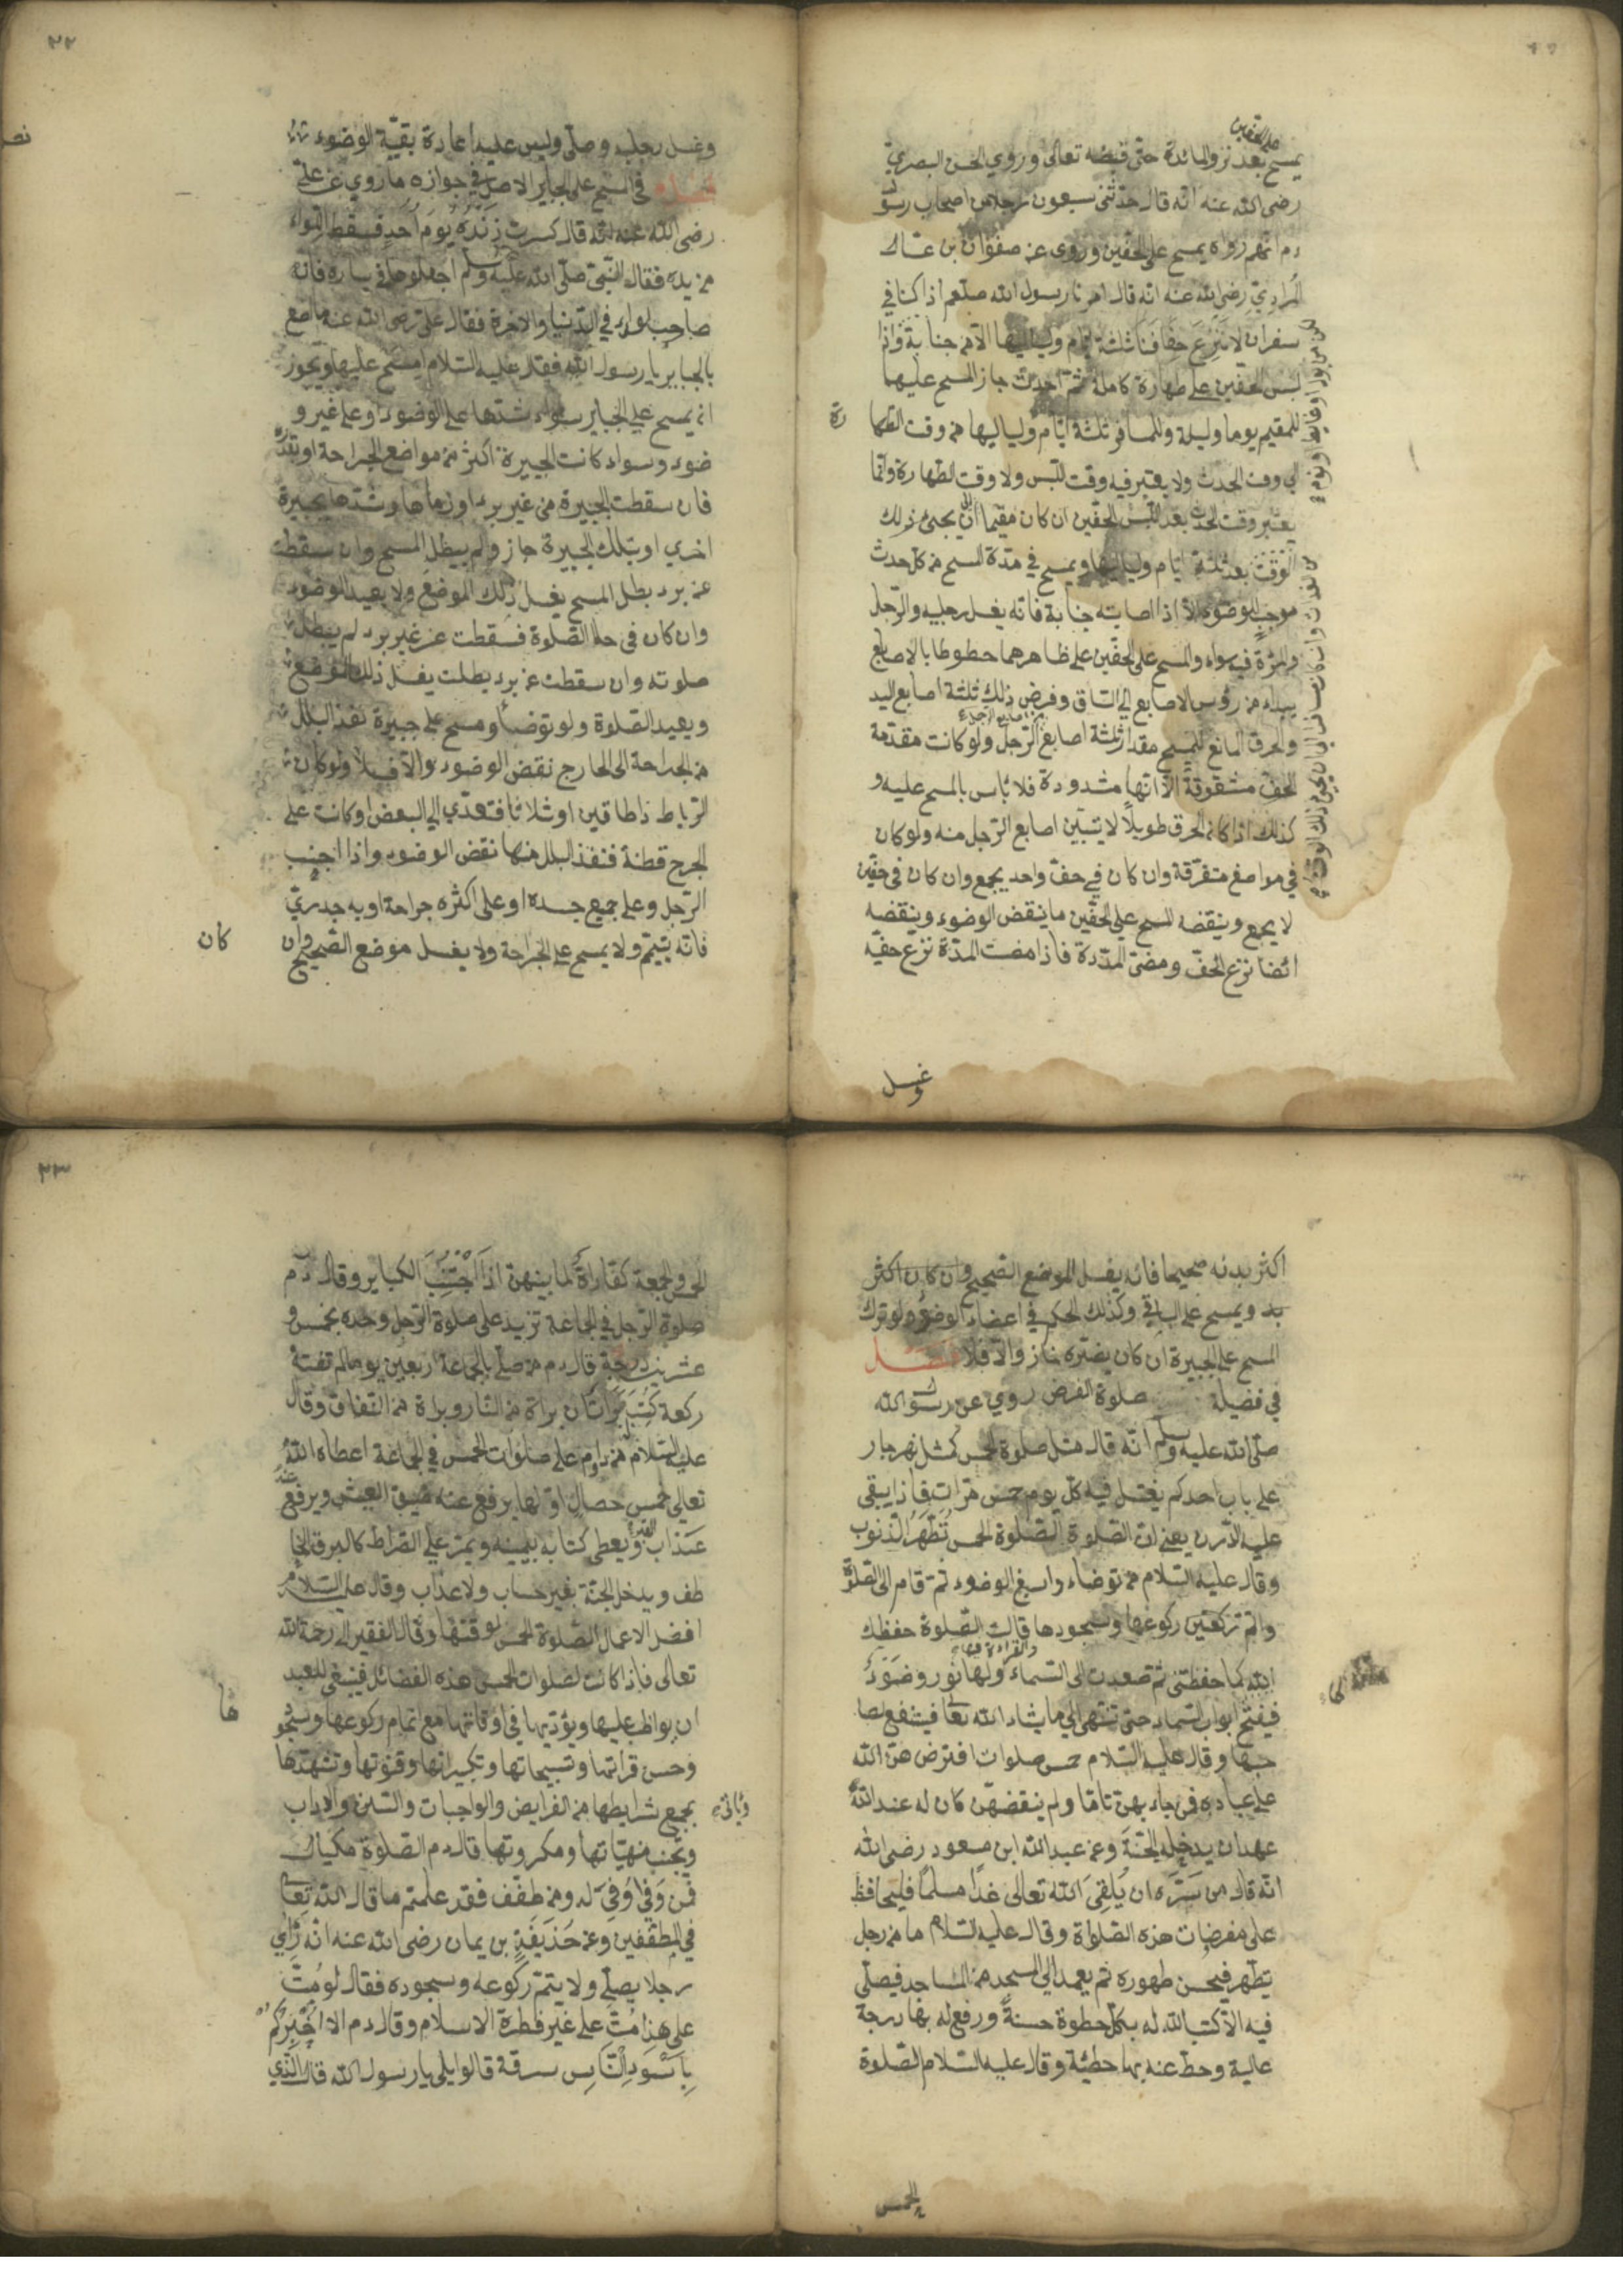 على الخفين
يمسح بعد نزول المائدة حتى قبضه تعالى وروي الحسن البصري
رضى الله عنه انه قال حدثنى سبعون رجلا من اصحاب رسول
دم انهم رواه يمسح على الخفين وروى عن صفوان بن عسال
المرادي رضى الله عنه انه قال امرنا رسول الله صلعم اذا كنا في
سفر ان لا ننزع خفافنا ثلثة ايام ولياليها الا من جنابة واذا
لبس الخفين على طهارة كاملة ثم احدث جاز المسح عليهما
للمقيم يوما وليلة وللمسافر ثلثة ايام ولياليها من وقت الطها
رة
الي وقت الحدث ولا يعتبر فيه وقت اللبس ولا وقت الطهارة وانما
يعتبر وقت الحدث بعد اللبس الخفين ان كان مقيما الى ان يجئ ذلك
الوقت بعد ثلثة ايام ولياليها ويمسح في مدة المسح من كل حدث
موجب للوضوء الا اذا اصابته جنابة فانه يغسل رجليه والرجل
والمرأة فيه سواء والمسح على الخفين على ظاهرهما خطوطا بالاصابع
يبداء من رؤس الاصابع الي الساق وفرض ذلك ثلثة اصابع اليد
والخرق المانع للمسح مقدار ثلثة اصابع الرجل ولو كانت مقدمة
الخف مشقوقة الا انها مشدودة فلا بأس بالمسح عليه و
كذلك اذا كان الخرق طويلا لا يتبين اصابع الرجل منه ولو كان
في مواضع متفرقة وان كان في خف واحد يجمع وان كان في خفين
لا يجمع وينقضه المسح على الخفين ما ينقض الوضوء وينقضه
ائضا نزع الخف ومضى المدة فاذا مضت المدة نزع خفيه
وغسل
٢٢
وغسل رجليه وصلى وليس عليه اعادة بقية الوضوء
فصل في المسح على الجباير الاصل في جوازه ما روي عن على
رضى الله عنه انه قال كسرت زنده يوم احد فسقط اللواء
من يده فقال النبى صلى الله عليه وسلم اجعلوها في يساره فانه
صاحب لوائى في الدنيا والاخرة فقال على رضى الله عنه ما اصنع
بالجباير يا رسول الله فقال عليه السلام امسح عليها ويجوز
ان يمسح على الجباير سواء شدها على الوضوء او على غير و
ضوء وسواء كانت الجبيرة اكثر من مواضع الجراحة او بقدره
فان سقطت الجبيرة من غير برء او نزعها وشدها بجبيرة
اخري او بتلك الجبيرة جاز ولم يبطل المسح وان سقطت
عن برء بطل المسح يغسل ذلك الموضع ولا يعيد الوضوء
وان كان في حالة الصلوة فسقطت عن غير برء لم يبطل
صلوته وان سقطت عن برء بطلت يغسل ذلك الموضع
ويعيد الصلوة ولو توضأ ومسح على جبيرة نفذ البلل
من الجراحة الى الخارج نقض الوضوء والا فلا ولو كان
الرباط ذا طاقين او ثلاثا فتعدي الي البعض او كانت على
الجرح قطنة فنفذ البلل منها نقض الوضوء واذا اجنب
الرجل وعلى جميع جسده او على اكثره جراحة او به جدري
فانه يتيمم ولا يمسح على الجراحة ولا يغسل موضع الصحيح وان
كان
اكثر بدنه صحيحا فانه يغسل الموضع الصحيح وان كان اكثر
بد ويمسح على الباقي وكذلك الحكم في اعضاء الوضوء ولو ترك
المسح على الجبيرة ان كان يضره جاز والا فلا فصل
في فضيلة صلوة الفرض روي عن رسول الله
صلى الله عليه وسلم انه قال مثل صلوة الخمس كمثل نهر جار
على باب احدكم يغتسل فيه كل يوم خمس مرات فماذا يبقى
عليه الدرن يعنى ان الصلوة الصلوة الخمس تطهر الذنوب
وقال عليه السلام من توضاء واسبغ الوضوء ثم قام الى الصلوة
واتم ركعتين ركوعها وسجودها قالت الصلوة حفظك
والقراءة فيها
الله كما حفظتنى ثم صعدت الى السماء ولها نور وضوء
فيفتح ابواب السماء حتى تنتهى الي ما يشاء الله تعا فيشفع لصا
حبها وقال عليه السلام خمس صلوات افترض هن الله
على عباده فمن جاء بهن تاما ولم ينقضهن كان له عند الله
عهد ان يدخله الجنة وعن عبد الله ابن مسعود رضى الله
انه قال من سره ان يلقى الله تعالى غدا مسلما فليحافظ
على مفرضات هذه الصلواة وقال عليه السلام ما من رجل
يتطهر فيحسن طهوره ثم يعمد الي المسجد من المساجد فيصلى
فيه الا كتب الله له بكل خطوة حسنة ورفع له بها درجة
عالية وحط عنه بها خطيئة وقال عليه السلام الصلوة
الخمس
٢٣
الخمس والجمعة كفاراة لما بينهن اذا اجتنب الكباير وقال دم
صلوة الرجل في الجماعة تزيد على صلوة الرجل وحده بخمس و
عشرين درجة قال دم من صلى بالجماعة اربعين يوما لم تفته
ركعة كتب براتان براة من النار وبراة من النفاق وقال
عليه السلام من داوم على صلوات الخمس في الجماعة اعطاه الله
تعالى خمس خصال اولها يرفع عنه ضيق العيش ويرفع عنه
عذاب القبر ويعطى كتابه بيمينه ويمر على الصراط كالبرق الخا
طف ويدخل الجنة بغير حساب ولا عذاب وقال عليه السلام
افضل الاعمال الصلوة الخمس لوقتها وقال الفقير اليه رحمة الله
تعالى فاذا كانت لصلوات الخمس هذه الفضائل فينبغي للعبد
ان يواظب عليها ويؤديها في اوقاتها مع اتمام ركوعها وسجو
وحسن قراتها وتسبيحاتها وتكبيراتها وقنوتها وتشهدها
ويأتى بجميع شرايطها من الفرايض والواجبات والسنن والاداب
وتجنب منهياتها ومكروتها قال دم الصلوة مكيال
فمن وفا وفى له ومن طفف فقد علمتم ما قال الله تعا
في المطففين وعن حذيفة بن يمان رضى الله عنه انه رأى
رجلا يصلى ولا يتم ركوعه وسجوده فقال لو مت
على هذا مت على غير فطرة الاسلام وقال دم الا اخبركم
باسود الناس سرقة قالوا بلى يا رسول الله قال الذي